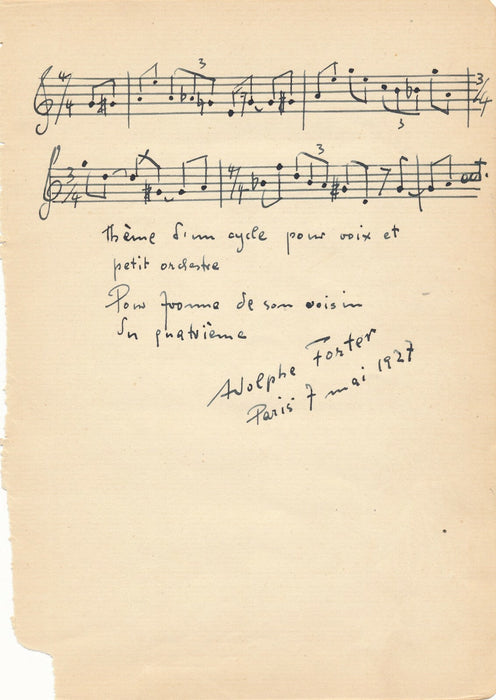 4/4 3 3 3/4
3/4 4/4 3
thème d'un cycle pour voix et
petit orchestre
Pour Yvonne de son voisin
du quatrième
Adolphe Forter
Paris 7 mai 1927